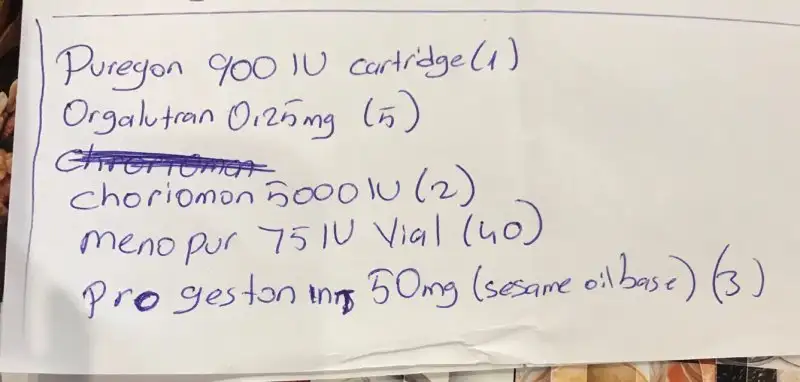 Puregon 900 IU cartridge (1)
Orgalutran 0,25mg (5)
choriomon 5000 IU (2)
menopur 75 IU Vial (40)
progeston inj 50mg (sesame oil base) (3)